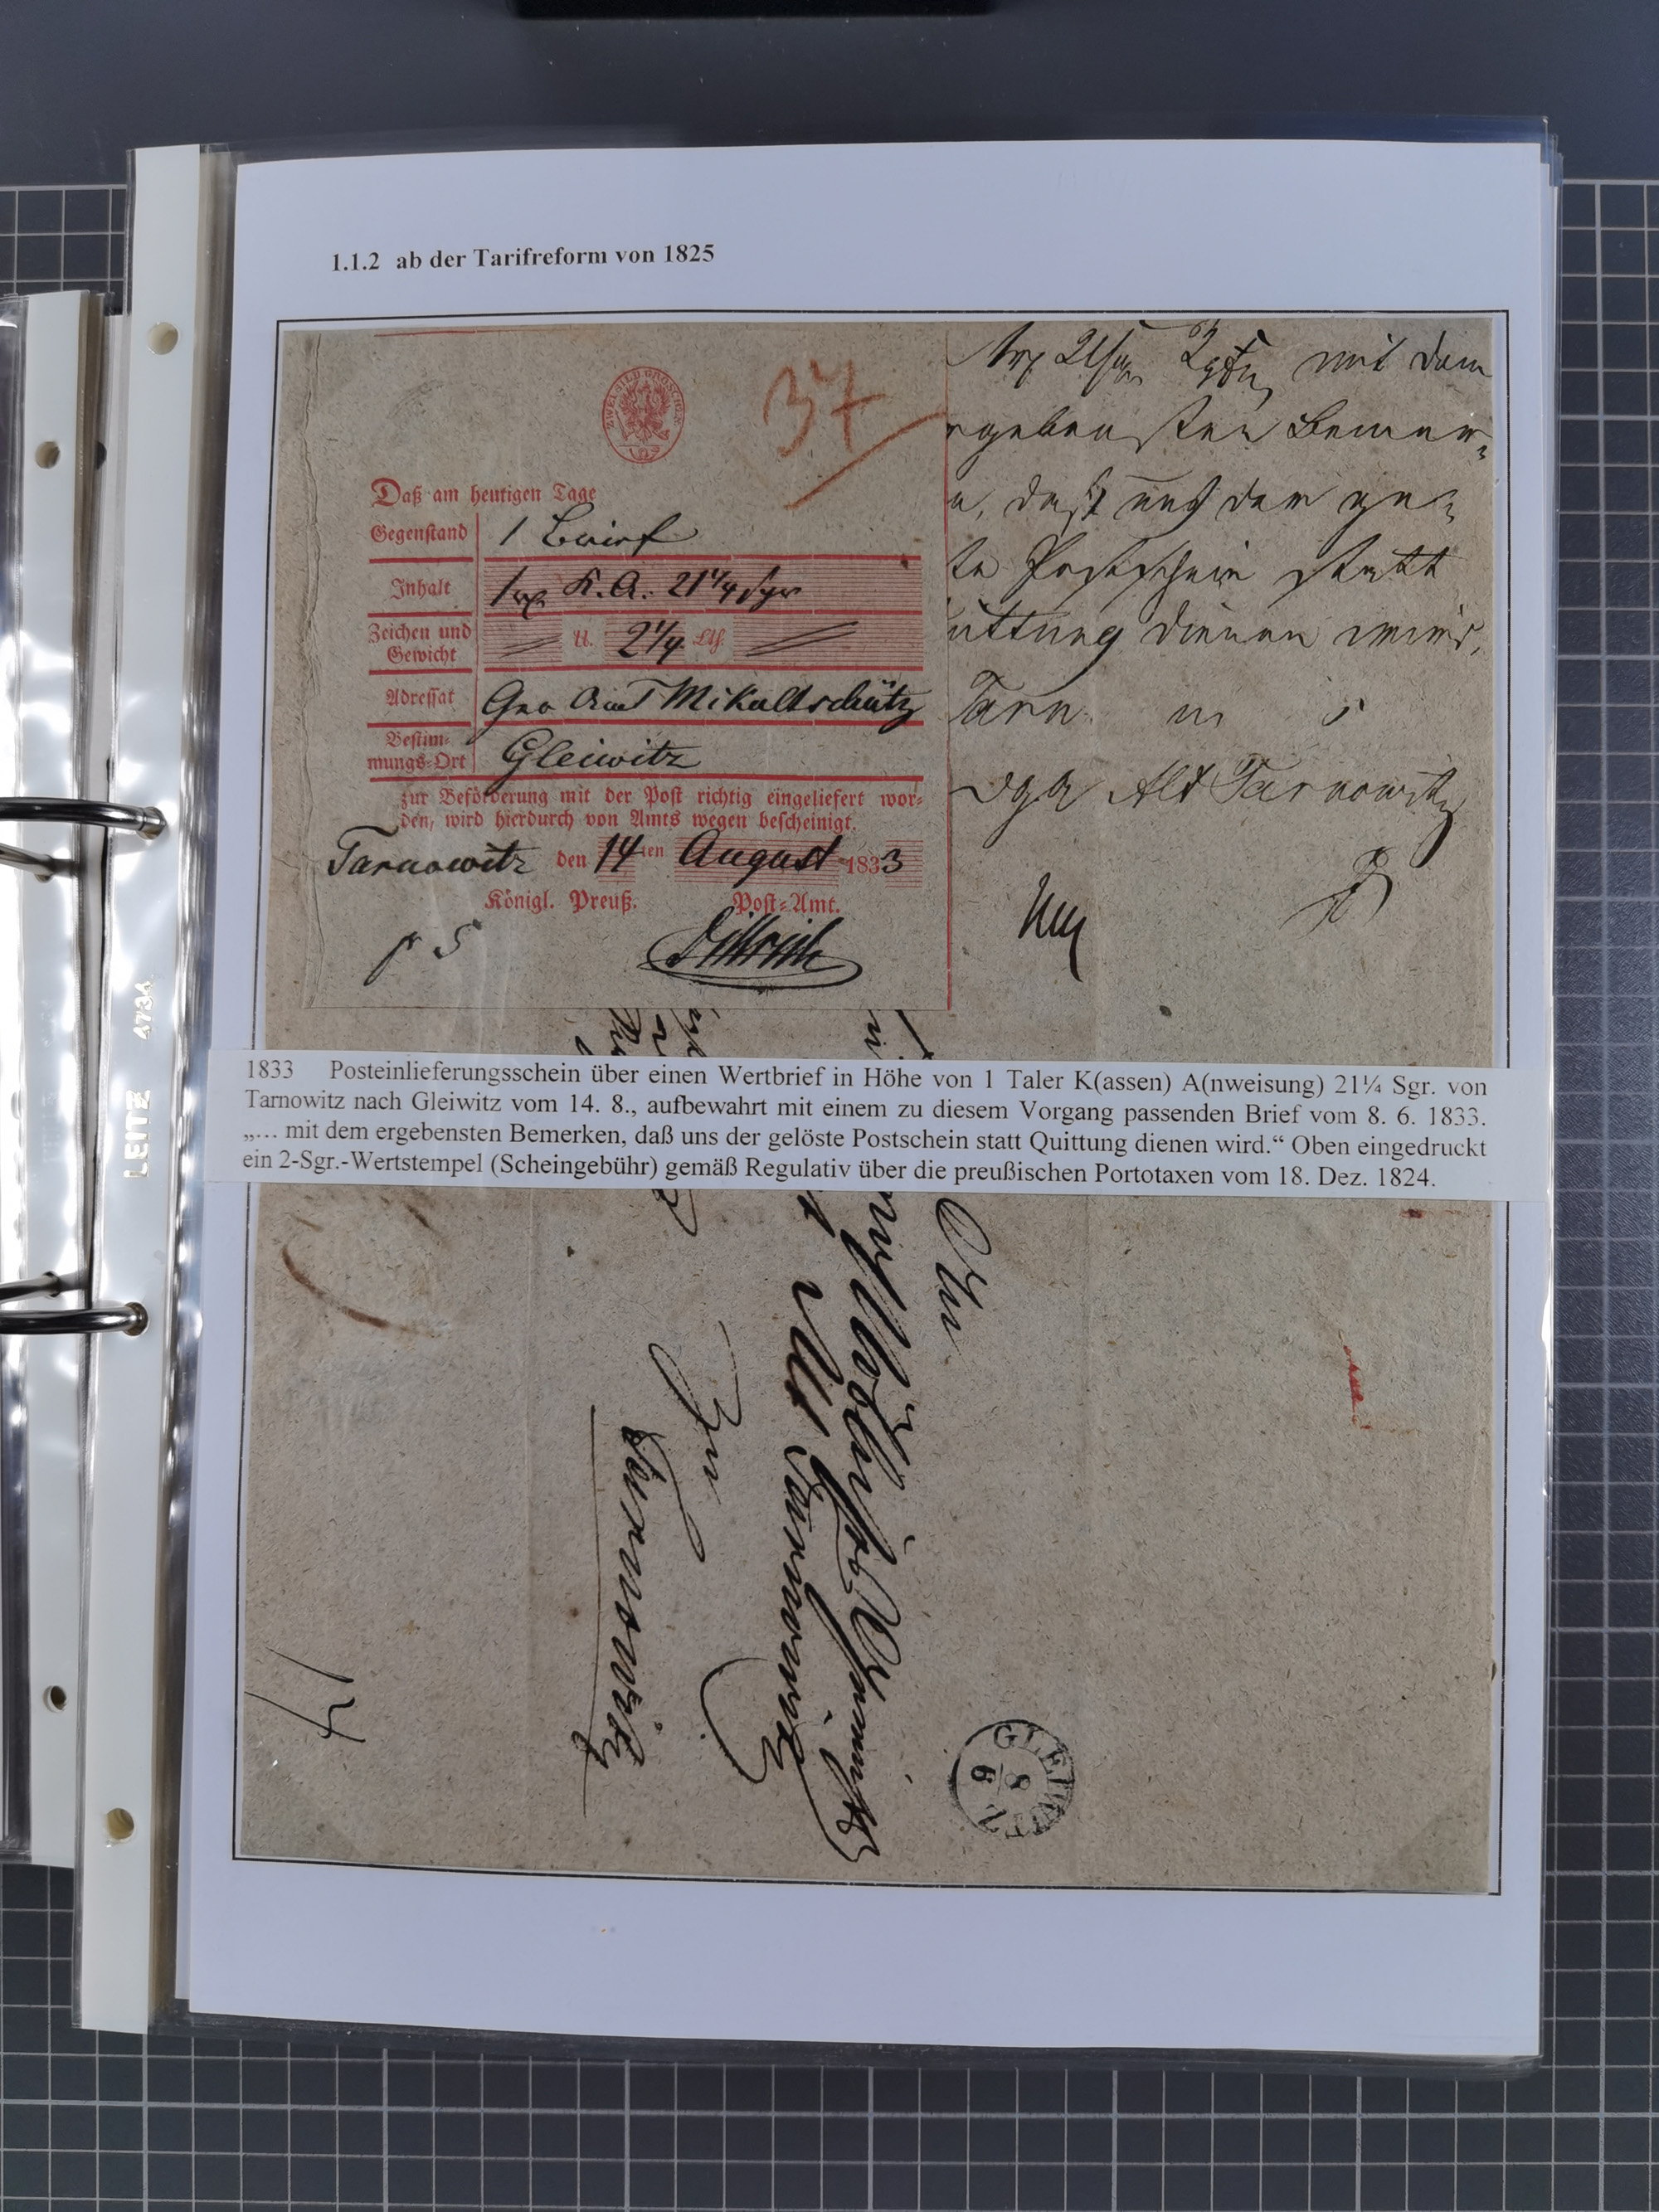 1.1.2 ab der Tarifreform von 1825
ZWEI SILB. GROSCHEN
37
Daß am heutigen Tage
Gegenstand 1 Brief
Inhalt 1 K. A. 21 1/4 sgr
Zeichen und Gewicht U. 2 1/4 Lth.
Adressat Mikultschütz
Bestimmungs-Ort Gleiwitz
zur Beförderung mit der Post richtig eingeliefert wor-
den, wird hierdurch von Amts wegen bescheinigt.
Tarnowitz den 14ten August 1833
Königl. Preuß. Post-Amt.
5
mit dem
rgebensten Bemer-
n, daß uns der ge-
te Postschein statt
uittung dienen wird.
Tarn
Alt Tarnowitz
1833 Posteinlieferungsschein über einen Wertbrief in Höhe von 1 Taler K(assen) A(nweisung) 21¼ Sgr. von
Tarnowitz nach Gleiwitz vom 14. 8., aufbewahrt mit einem zu diesem Vorgang passenden Brief vom 8. 6. 1833.
„... mit dem ergebensten Bemerken, daß uns der gelöste Postschein statt Quittung dienen wird.“ Oben eingedruckt
ein 2-Sgr.-Wertstempel (Scheingebühr) gemäß Regulativ über die preußischen Portotaxen vom 18. Dez. 1824.
An
Alt Tarnowitz
Tarnowitz
GLEIWITZ
8
6
LEITZ 4734